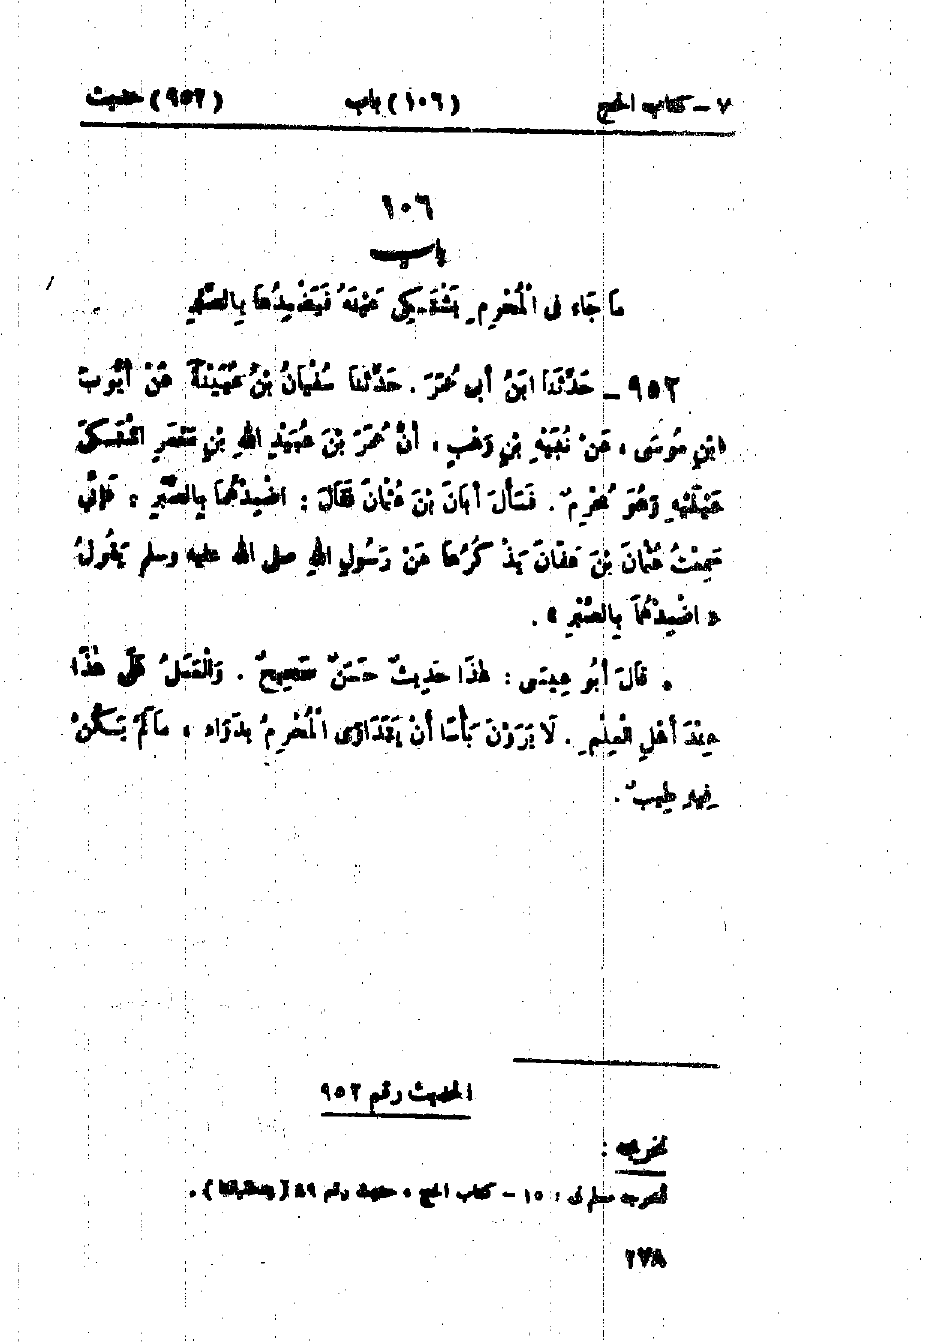 ٧ – كتاب الحج (١٠٦) باب (٩٥٢) حديث
١٠٦
باب
مَا جَاءَ فِى الْمُحْرِمِ يَشْتَكِى عَيْنَهُ فَيَضْمِدُهَا بِالصَّبِرِ
٩٥٢ – حَدَّثَنَا ابْنُ أَبِى عُمَرَ . حَدَّثَنَا سُفْيَانُ بْنُ عُيَيْنَةَ عَنْ أَيُّوبَ
ابْنِ مُوسَى ، عَنْ نُبَيْهِ بْنِ وَهْبٍ ، أَنَّ عُمَرَ بْنَ عُبَيْدِ اللهِ بْنِ مَعْمَرٍ اشْتَكَى
عَيْنَيْهِ وَهُوَ مُحْرِمٌ . فَسَأَلَ أَبَانَ بْنَ عُثْمَانَ فَقَالَ : اضْمِدْهُمَا بِالصَّبِرِ : فَإِنِّى
سَمِعْتُ عُثْمَانَ بْنَ عَفَّانَ يَذْكُرُهَا عَنْ رَسُولِ اللهِ صلى الله عليه وسلم يَقُولُ
« اضْمِدْهُمَا بِالصَّبِرِ » .
• قَالَ أَبُو عِيسَى : هٰذَا حَدِيثٌ حَسَنٌ صَحِيحٌ . وَالْعَمَلُ عَلَى هٰذَا
عِنْدَ أَهْلِ الْعِلْمِ . لَا يَرَوْنَ بَأْسًا أَنْ يَتَدَاوَى الْمُحْرِمُ بِدَوَاءٍ ، مَا لَمْ يَكُنْ
فِيهِ طِيبٌ .
الحديث رقم ٩٥٢
تخريجه :
أخرجه مسلم فى : ١٥ – كتاب الحج ، حديث رقم ٨٩ ( بتحقيقنا ) .
٢٧٨